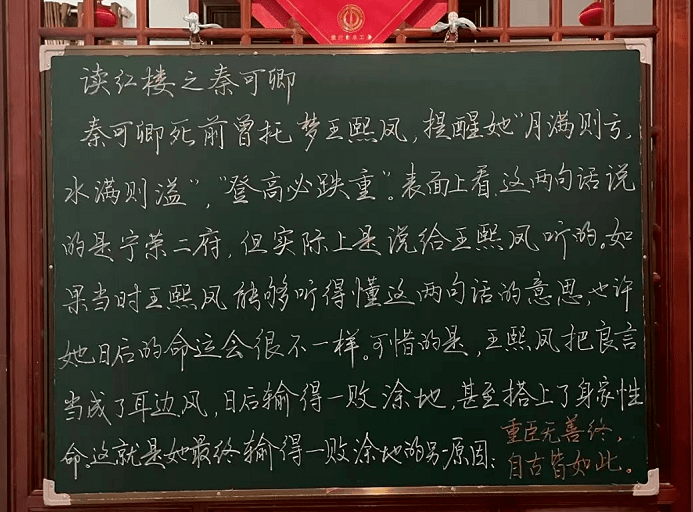 读红楼之秦可卿
秦可卿死前曾托梦王熙凤，提醒她"月满则亏，
水满则溢"，"登高必跌重"。表面上看，这两句话说
的是宁荣二府，但实际上是说给王熙凤听的。如
果当时王熙凤能够听得懂这两句话的意思，也许
她日后的命运会很不一样。可惜的是，王熙凤把良言
当成了耳边风，日后输得一败涂地，甚至搭上了身家性
命。这就是她最终输得一败涂地的另一原因：
重臣无善终，
自古皆如此。